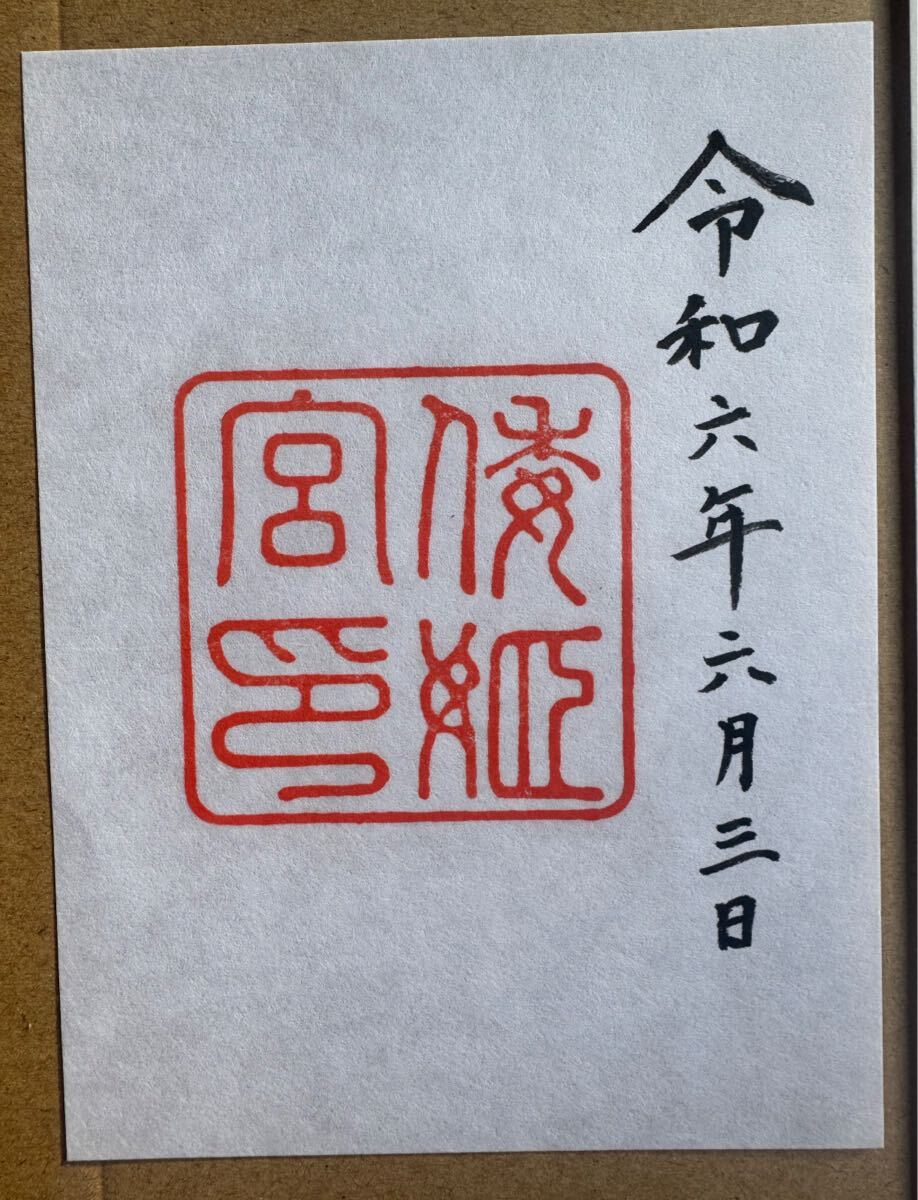 令和六年六月三日
倭姫
宮印